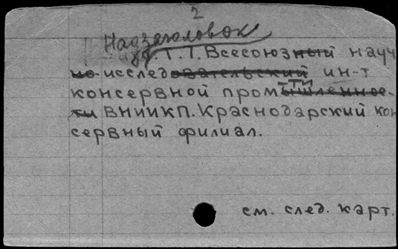 2
Надзаголовок
Т.Т. Всесоюзный науч
но-исследовательский ин-т
консервной промышленнос
ти ВНИИКП. Краснодарский кон
сервный филиал.
см. след. карт.